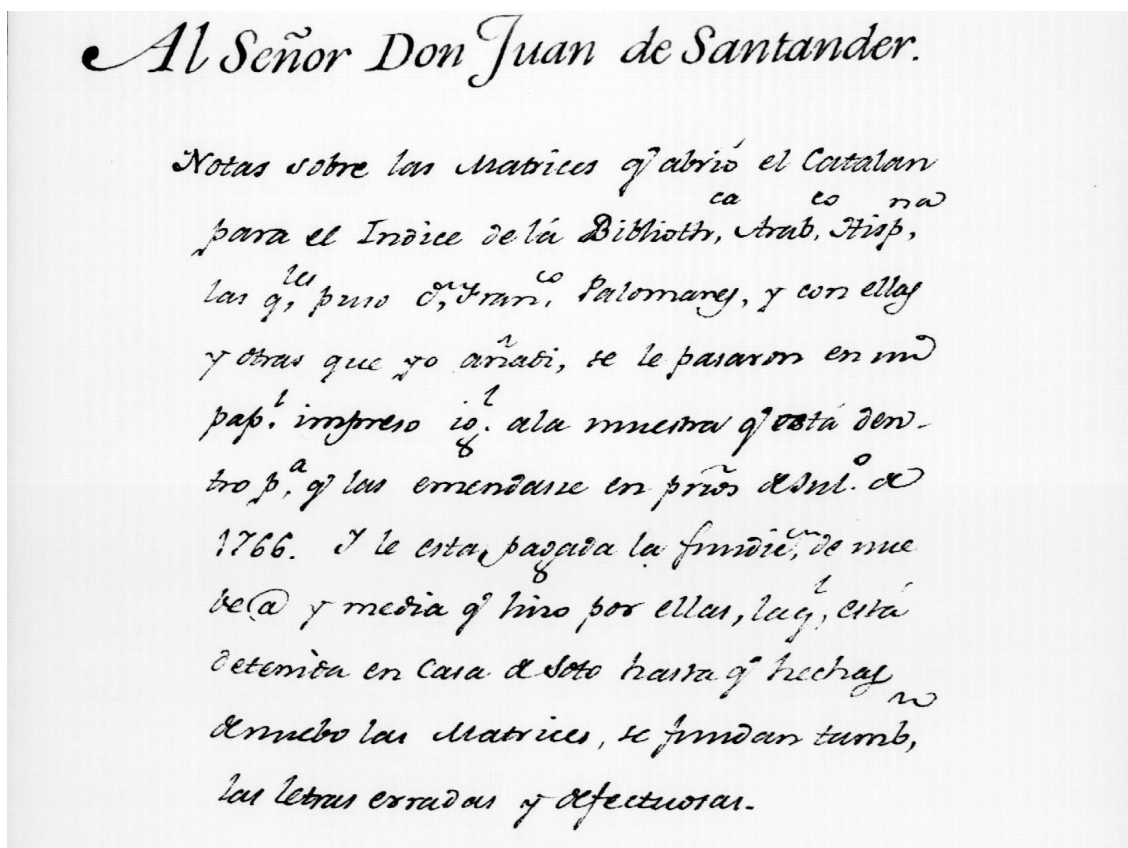 Al Señor Don Juan de Santander.
Notas sobre las Matrices q̃ abrió el Catalan
para el Indice de lá Biblioth,ca Arab,co Hisp,na
las q,les puso d,n Fran,co Palomares, y con ellas
y otras que yo añadi, se le pasaron en un
pap.l impreso ig.l ala muestra q̃ está den-
tro p,a q̃ las emendase en pr̃ios de Jul.o de
1766. Y le esta pagada la fundic,n de nue
ve @ y media q̃ hizo por ellas, la q,l está
detenida en Casa de Soto hasta q̃ hechas
de nuebo las Matrices, se fundan tamb,n
las letras erradas y defectuosas.